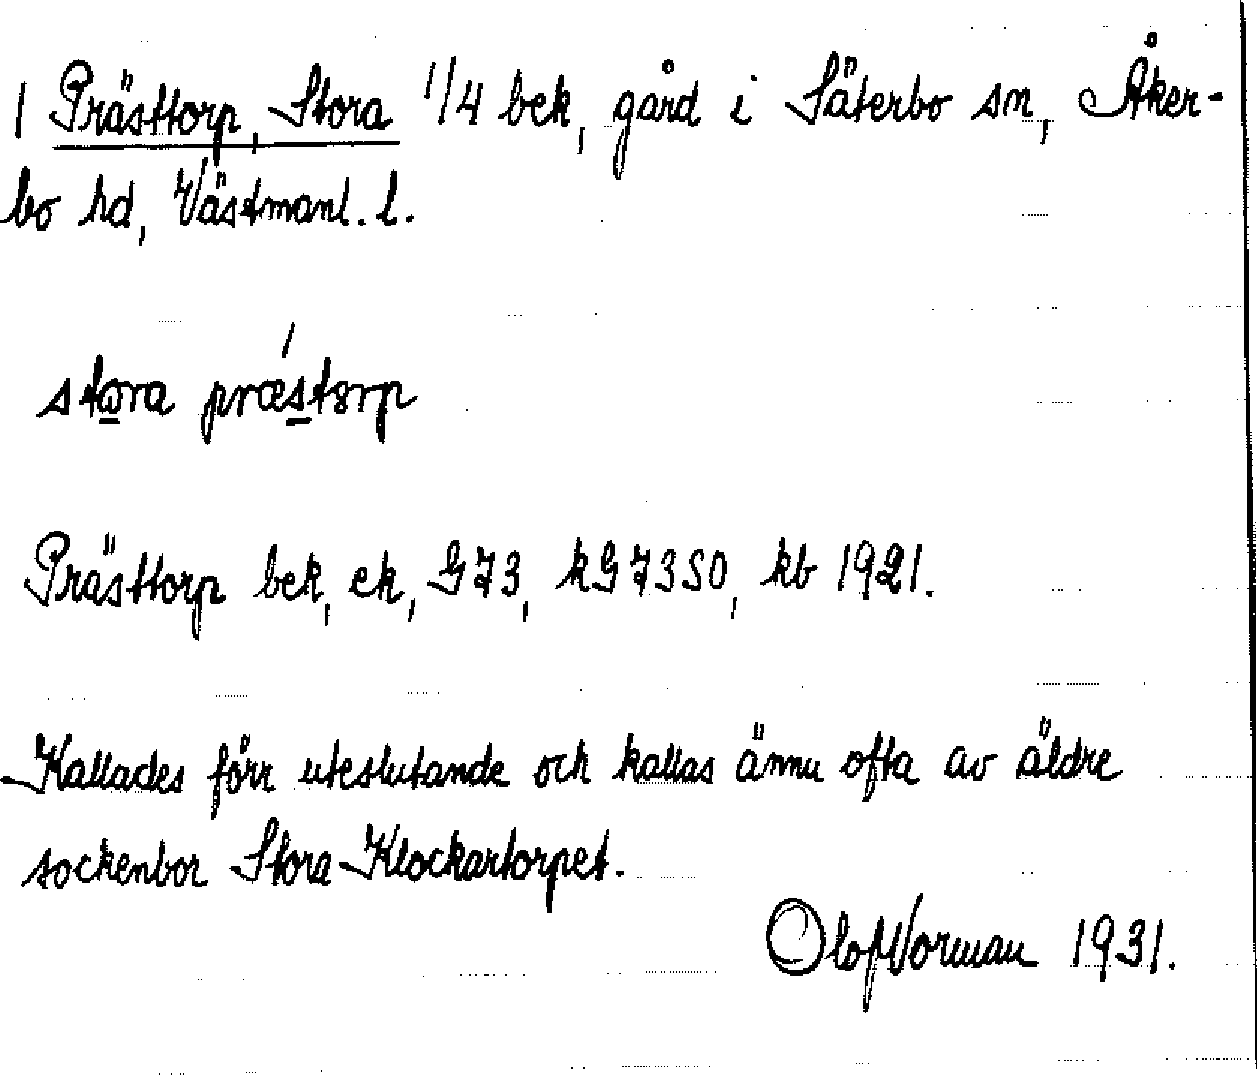 1 Prästtorp, Stora 1/4 bek, gård i Säterbo sn, Åker-
bo hd, Västmanl. l.
stora præstorp
Prästtorp bek, ek, GJ3, kGJ3SO, kb 1921.
Kallades förr uteslutande och kallas ännu ofta av äldre
sockenbor Stora Klockartorpet.
Olof Norman 1931.